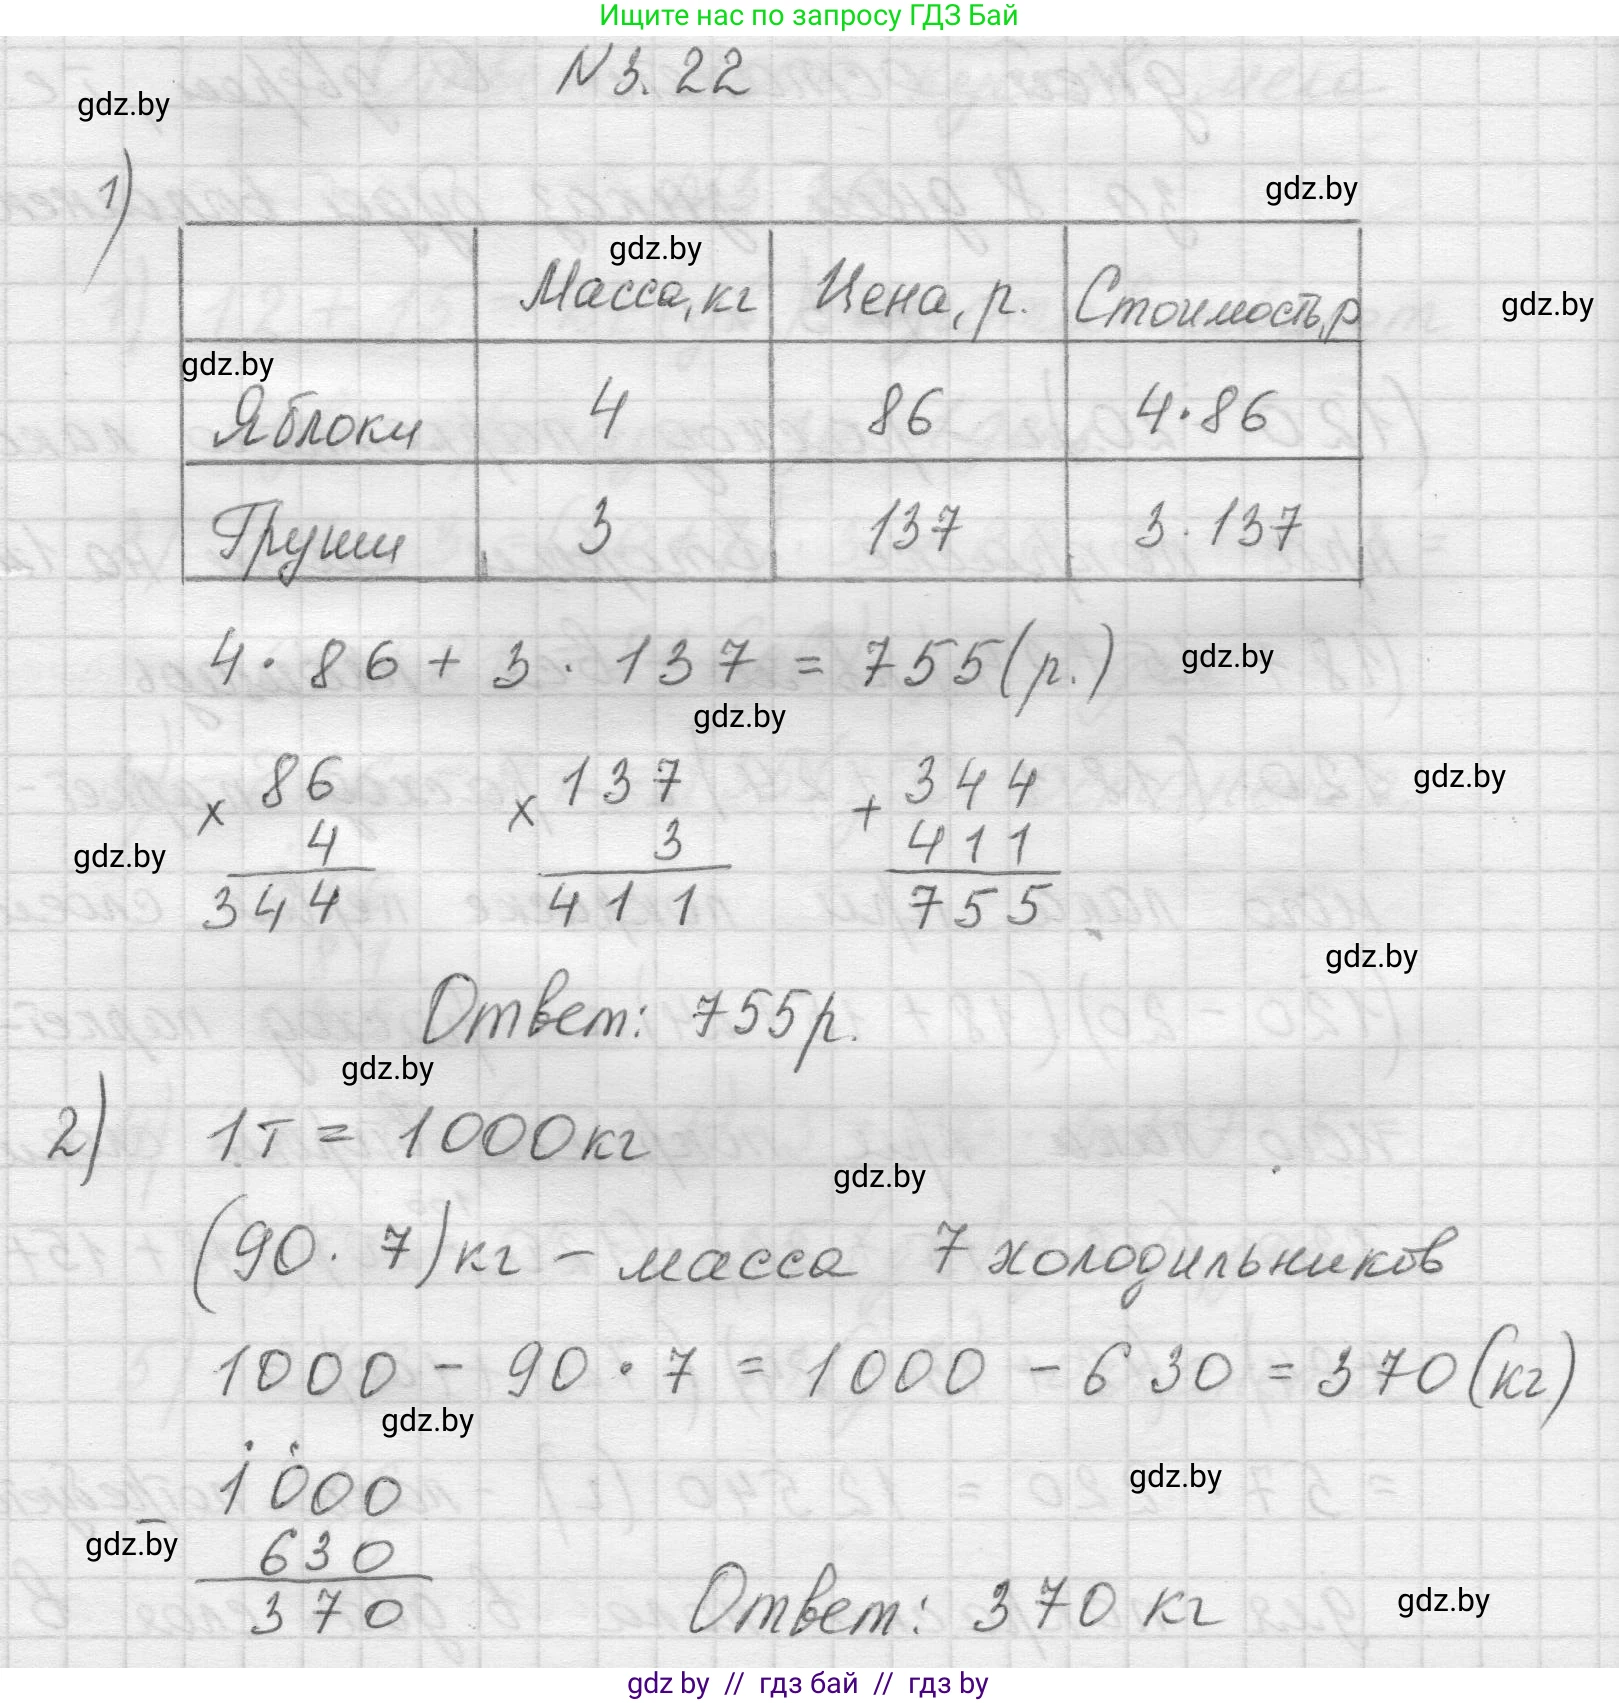 Ищите нас по запросу ГДЗ Бай
N 3. 22
gdz.by
1)
gdz.by
gdz.by
Масса, кг Цена, р. Стоимость, р
gdz.by
gdz.by
Яблоки 4 86 4·86
Груши 3 137 3·137
4·86 + 3·137 = 755(р.)
gdz.by
gdz.by
86 137 344
gdz.by
× × +
4 3 411
gdz.by
344 411 755
gdz.by
Ответ: 755р.
gdz.by
2) 1т = 1000кг
gdz.by
(90·7)кг – масса 7 холодильников
1000 – 90·7 = 1000 – 630 = 370(кг)
gdz.by
gdz.by
1000
–
gdz.by
630
370
Ответ: 370 кг
gdz.by
gdz by // гдз бай // гдз by